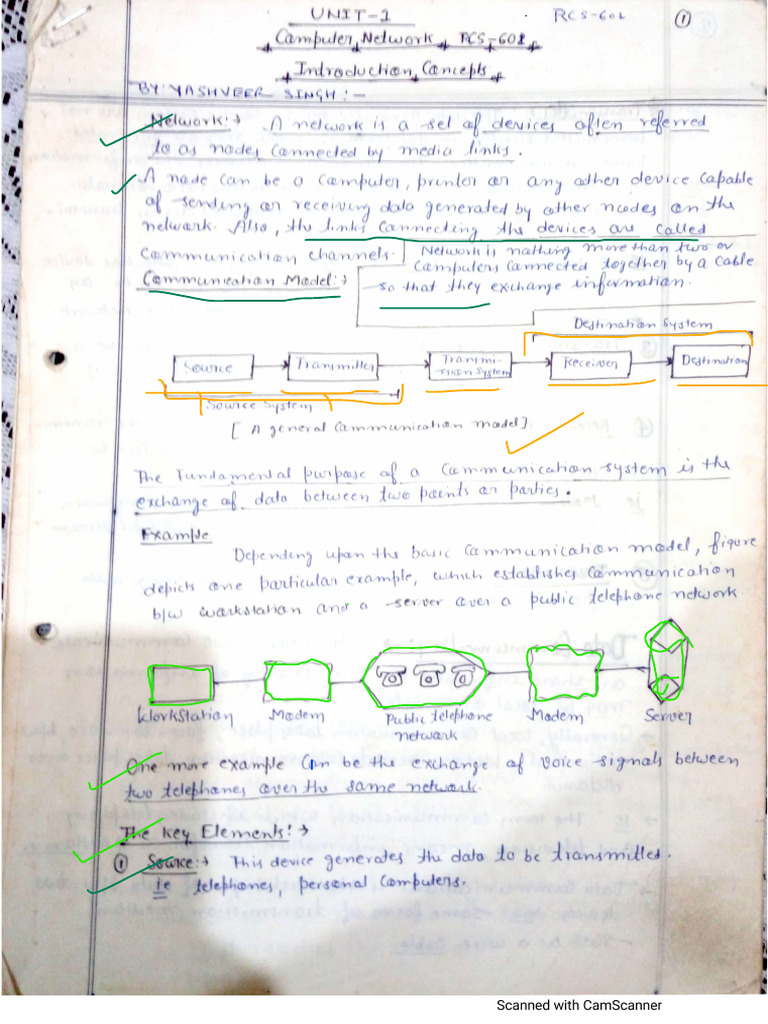 UNIT-1
RCS-601
1
Computer Network RCS-601
Introduction Concepts
BY: YASHVEER SINGH:-
Network:→ A network is a set of devices often referred
to as nodes connected by media links.
A node can be a computer, printer or any other device capable
of sending or receiving data generated by other nodes on the
network. Also, the links connecting the devices are called
communication channels.
Network is nothing more than two or
computers connected together by a cable
so that they exchange information.
Communication Model:→
Destination System
Source
Transmitter
Transmi-
ssion System
Receiver
Destination
Source System
[ A general communication model]
The Fundamental purpose of a communication system is the
exchange of data between two points or parties.
Example
Depending upon the basic communication model, figure
depicts one particular example, which establishes communication
b/w workstation and a server over a public telephone network
Workstation
Modem
Public telephone
network
Modem
Server
One more example can be the exchange of voice signals between
two telephones over the same network.
The Key Elements:→
① Source:→ This device generates the data to be transmitted.
ie telephones, personal computers.
Scanned with CamScanner